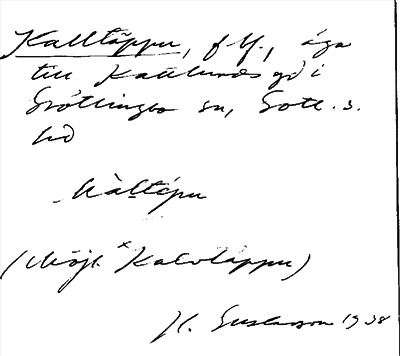 Kalltäppu, f. lf., äga
till Kattlunds gd i
Grötlingbo sn, Gotl. s.
hd
kàltépu
(Möjl. *Kalvtäppu)
H. Gustavson 1938